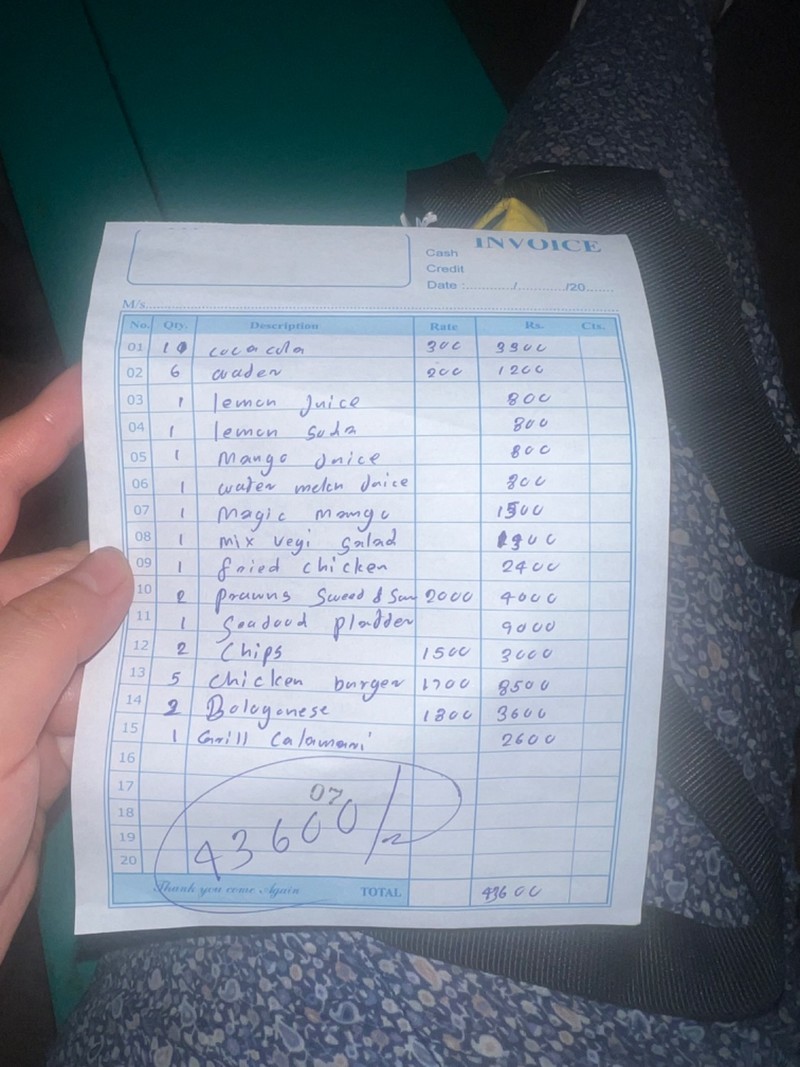 INVOICE
Cash
Credit
Date :............/............/20.......
M/s
No. Qty. Description Rate Rs. Cts.
01 coca cola 300
02 6 wader 200 1200
03 1 lemon Juice 800
04 1 lemon soda 800
05 1 Mango Juice 800
06 1 water melon Juice 800
07 1 Magic mango 1500
08 1 mix vegi salad
09 1 fried chicken 2400
10 2 prawns Sweed & 2000 4000
11 1 Seadood pladder 9000
12 2 Chips 1500 3000
13 5 chicken burger 1700 8500
14 2 Bologonese 1800 3600
15 1 Grill Calamari 2600
16
17 07
18 43600/
19
20
Thank you come Again TOTAL 43600